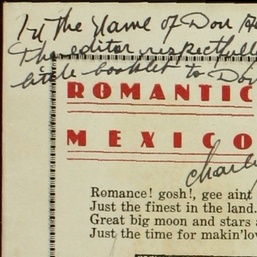 In the Name of Don
The editor respectfull
little booklet to Don
ROMANTIC
MEXICO
Charl
Romance! gosh!, gee aint
Just the finest in the land.
Great big moon and stars a
Just the time for makin'lov